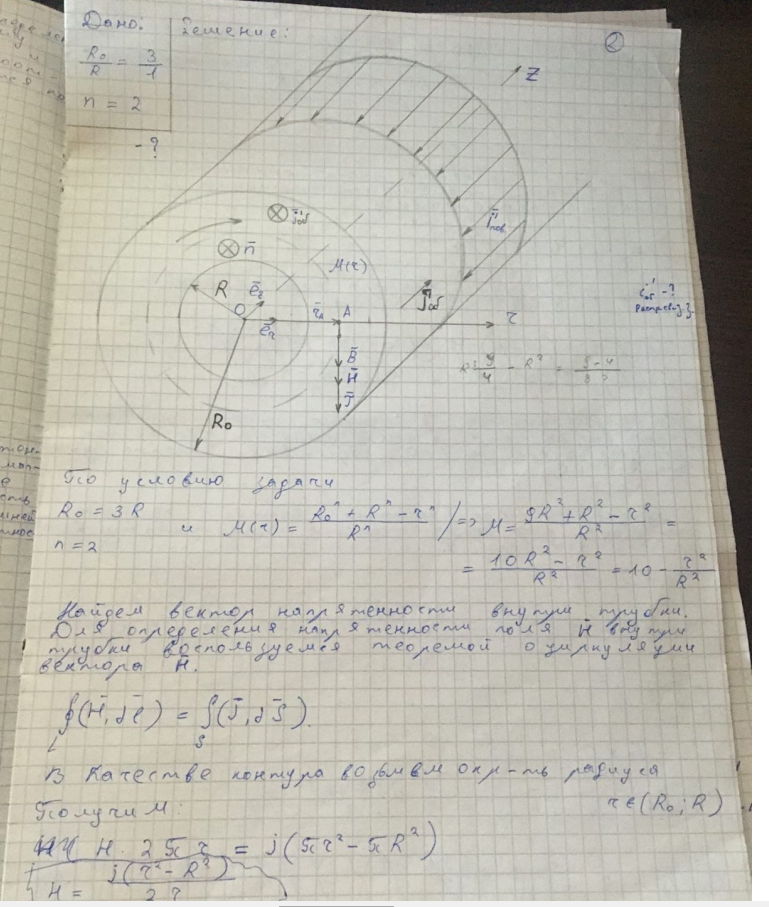 Дано:
Решение:
2
R₀/R = 3/1
n = 2
- ?
z
j'об
n̄
M(r)
j'пов
R
ē_z
O
ē_r
r̄_A
A
j'об
r
B̄
H̄
J̄
R₀
j'об - ?
По условию задачи
R₀ = 3R
n = 2
и M(r) = (R₀ⁿ + Rⁿ - rⁿ)/Rⁿ / => M = (9R² + R² - r²)/R² =
= (10R² - r²)/R² = 10 - r²/R²
Найдем вектор напряженности внутри трубки.
Для определения напряженности поля H̄ внутри
трубки воспользуемся теоремой о циркуляции
вектора H̄.
∮_L (H̄, dl̄) = ∫_S (j̄, dS̄).
В качестве контура возьмем окр-ть радиуса
r ∈ (R₀; R)
Получим:
H · 2πr = j(πr² - πR²)
H = j(r² - R²)/2r